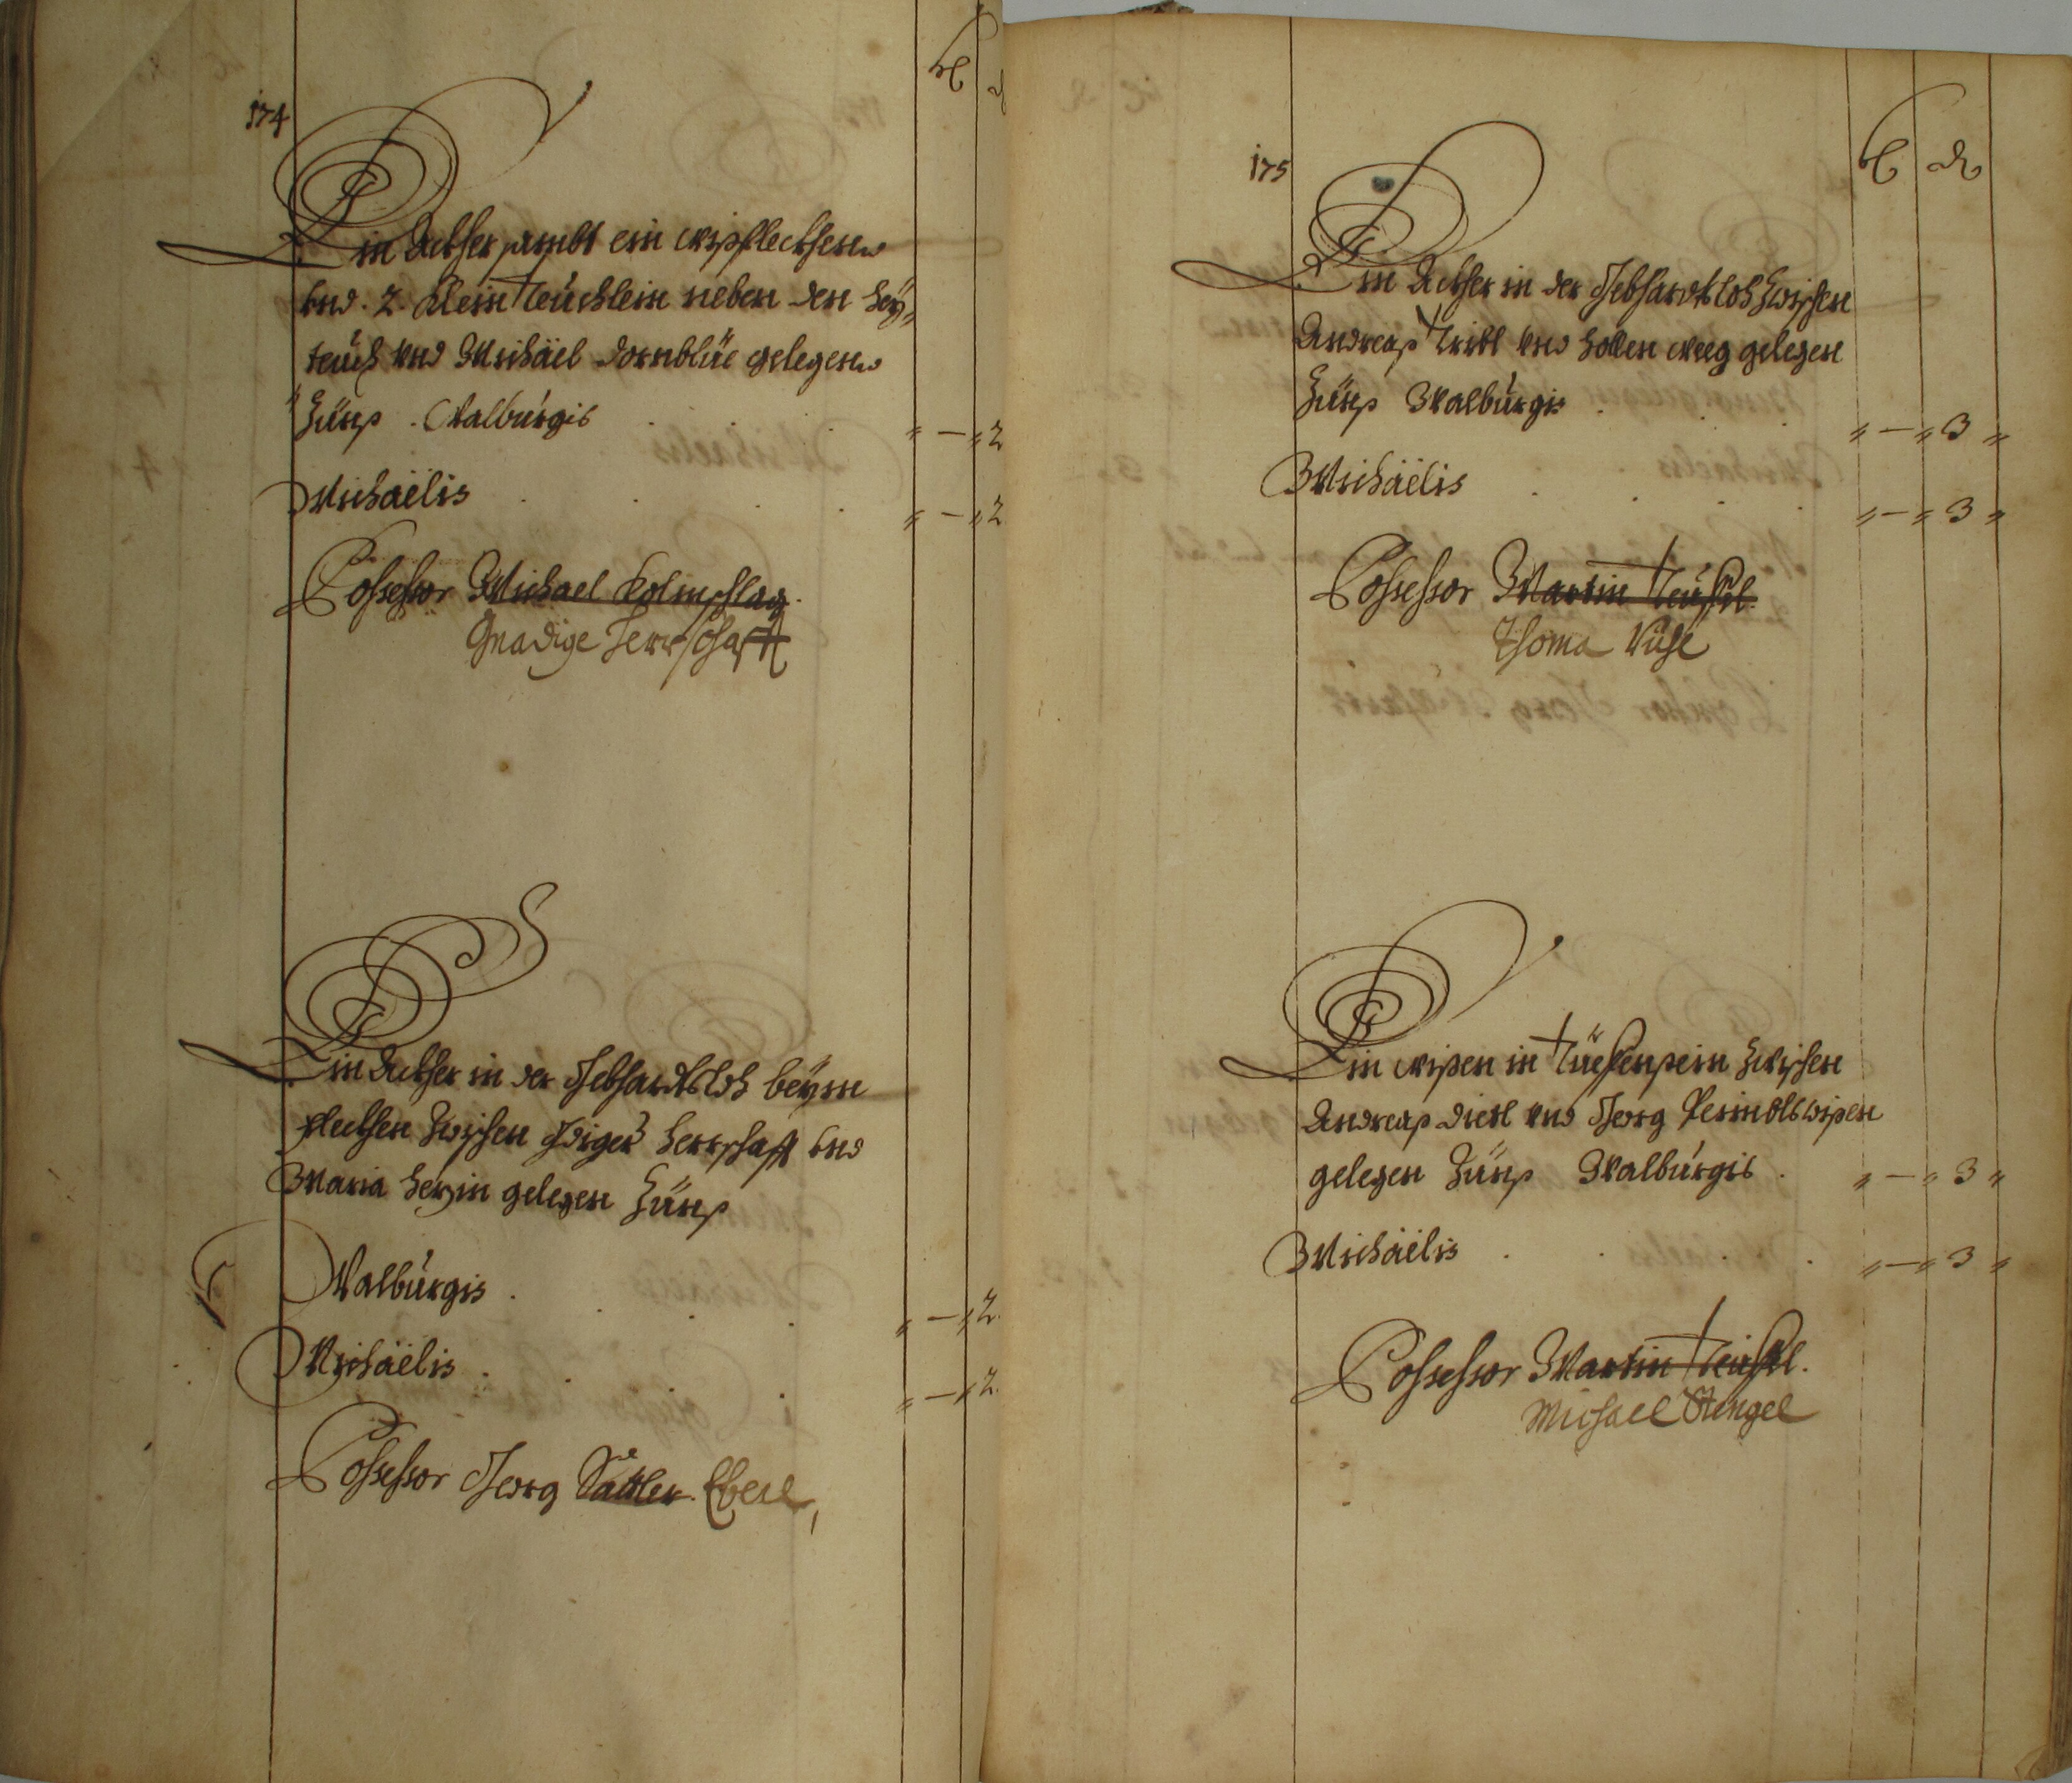 174
ß ₰
Ein Ackher sambt ein wißfleckhen
vnd. 2. klein Teüchlein neben den hey„
teüch vnd Michäel Dornblüe gelegen
Zünß. Walbúrgis . . . „ — „ 2
Michäelis . . . „ — „ 2
Possessor Michael Kolmschlag.
Gnadige Herrschafft
Ein Ackher in der Gebhardtsloh beÿm
flecken zwischen gdiger herrschafft vnd
Maria herzin gelegen Zünß
Walbúrgis . . . „ — „ 2.
Michäelis . . . „ — „ 2.
Possessor Georg Sattler. Eberl,
175
ß ₰
Ein Ackher in der Gebhardtsloh zwischen
Andreaß Trittl vnd hollen weeg gelegen
Zünß Walbúrgis . . „ — „ 3 „
Michäelis . . . „ — „ 3 „
Possessor Martin Teüffl.
Thoma
Ein wißen in Tüeffenpein zwischen
Andreaß Dietl vnd Georg Perindlswißen
gelegen Zünß Walbúrgis . „ — „ 3 „
Michäelis . . . „ — „ 3 „
Possessor Martin Teüffl.
Michael Stengel